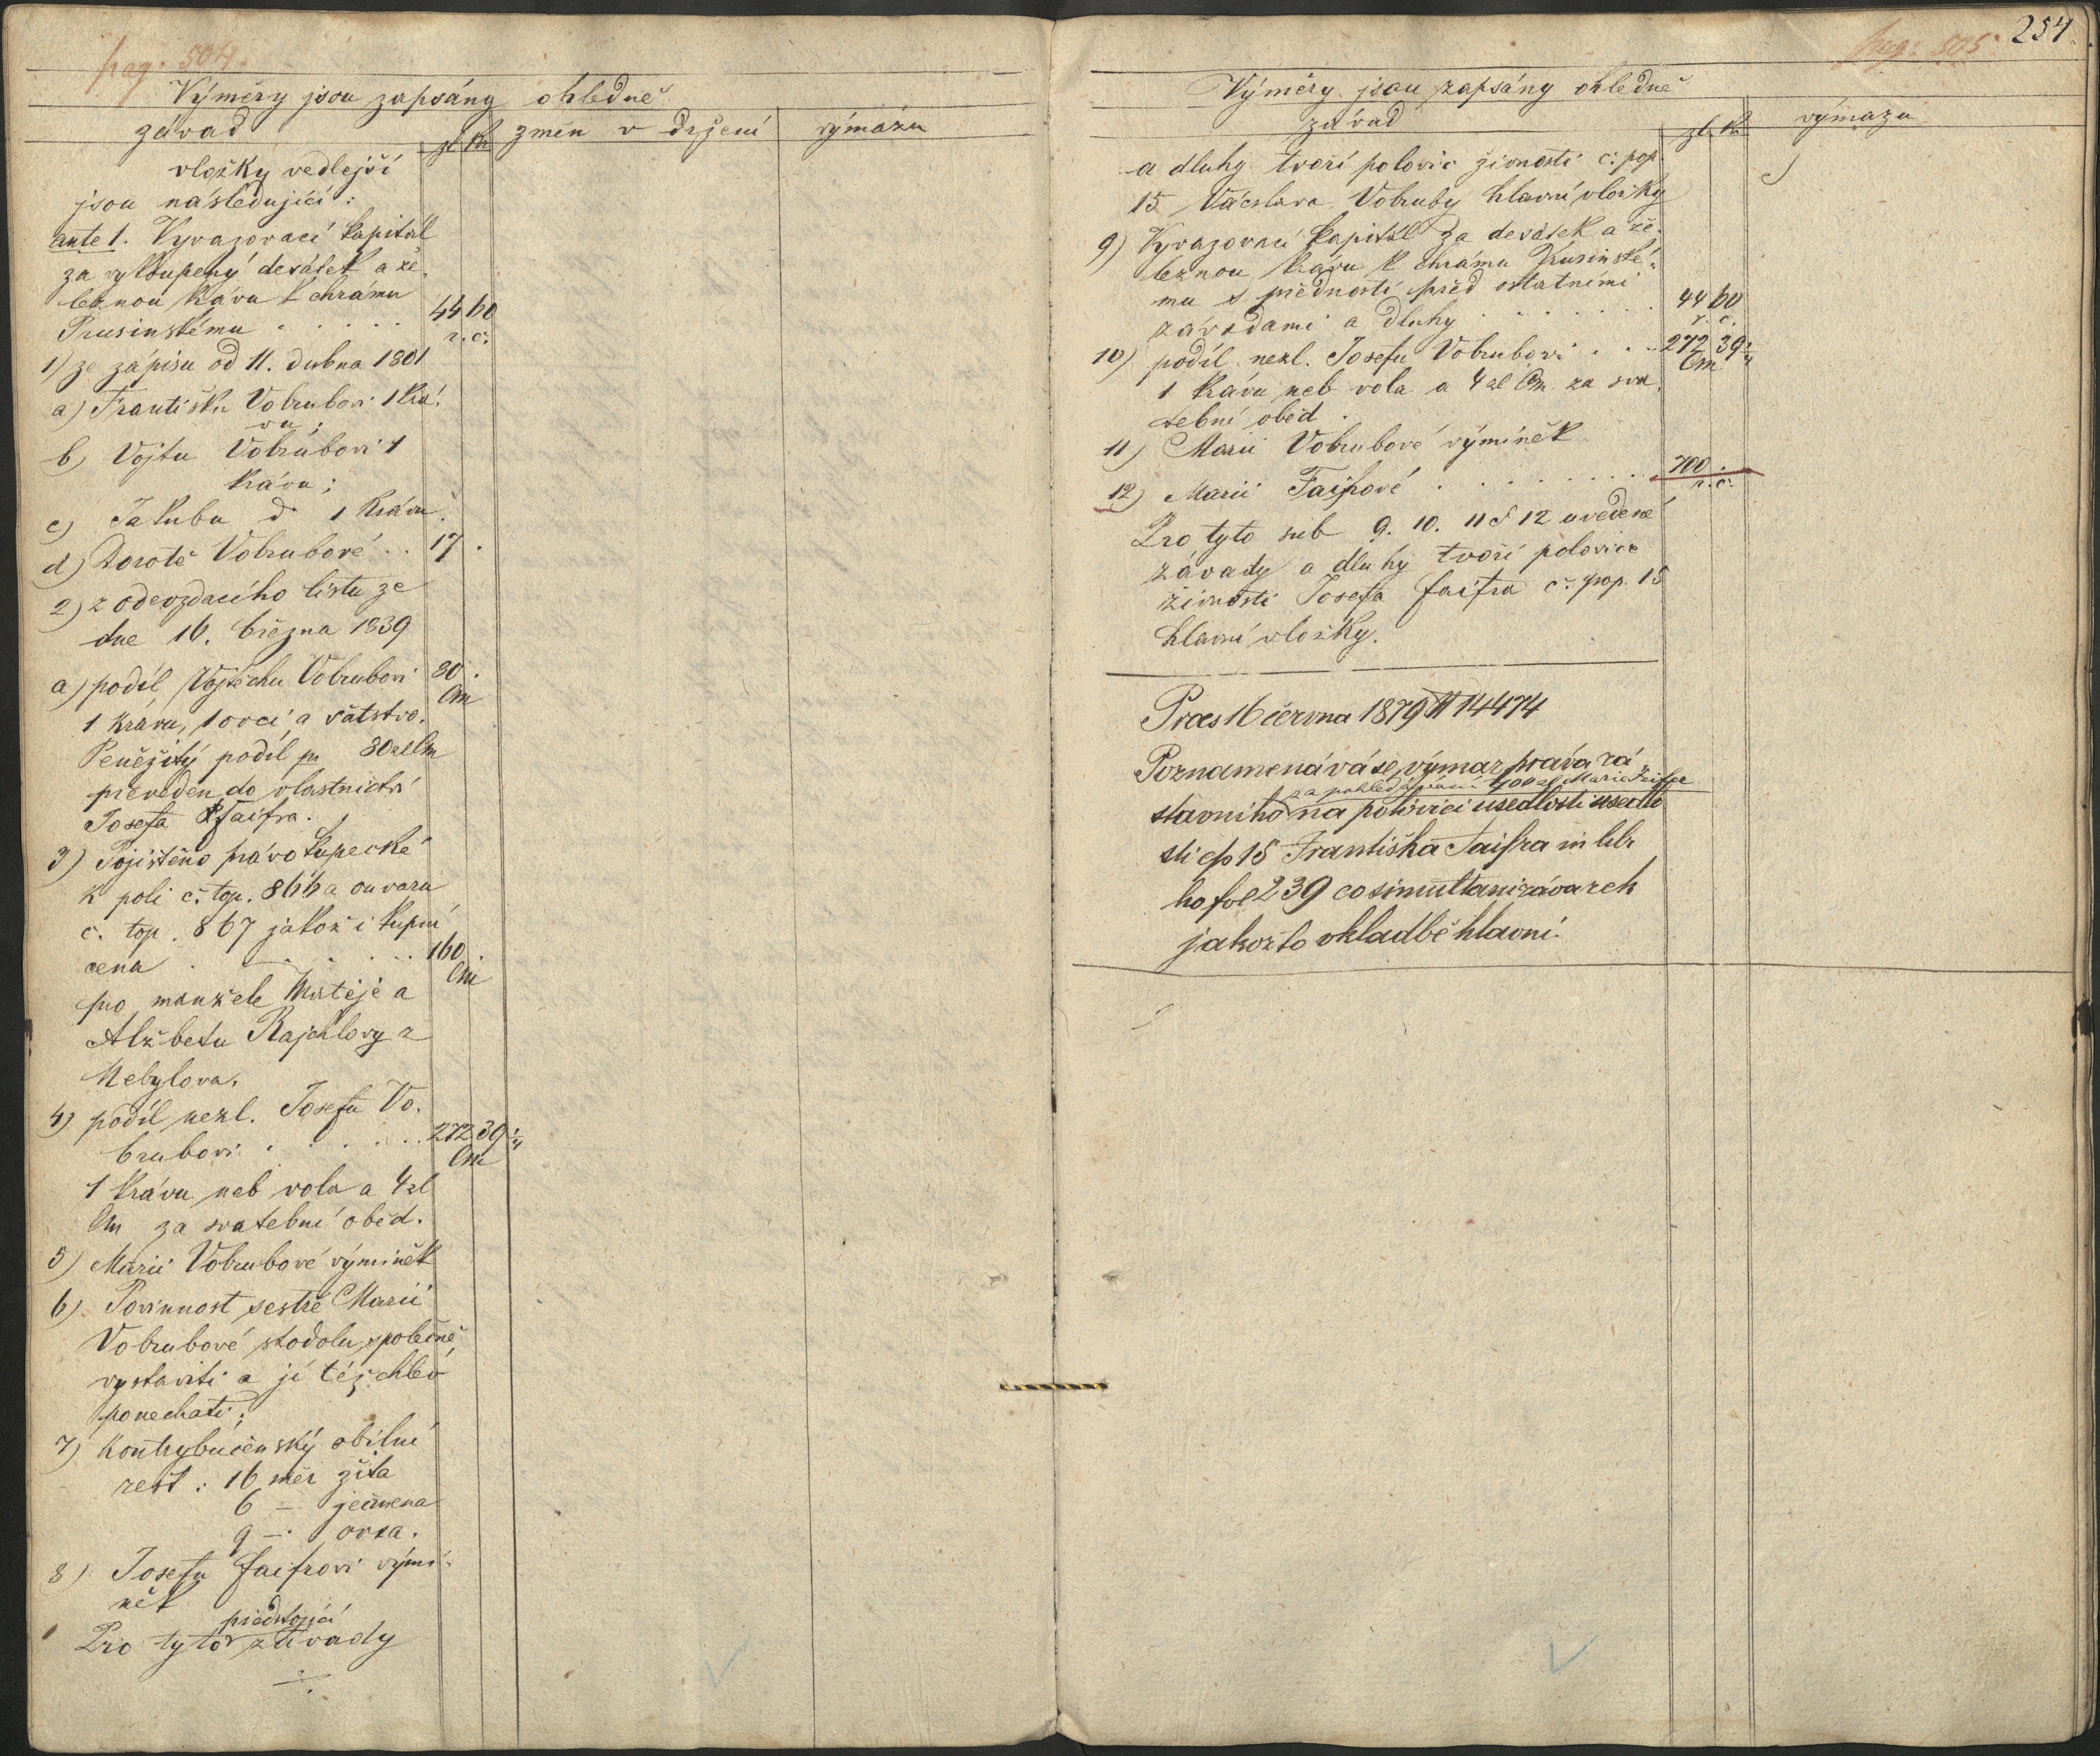 pag. 504.
Výměry jsou zapsány ohledně
závad
zl kr
změn v držení
výmazu
vložky vedlejší
jsou následující:
ante 1. Vyvazovací kapitál
za vykoupený desátek a že-
leznou krávu k chrámu
Prusinskému . . . . . 44 60
r. č.
1) ze zápisu od 11. dubna 1801
a) Františku Vobrubovi 1 krá-
vu;
b) Vojtu Vobrubovi 1
krávu;
c) Jakubu dº 1 krávu.
d) Dorotě Vobrubové . . 17 .
2) z odevzdacího listu ze
dne 16. března 1839
a) podíl Vojtěchu Vobrubovi 80 .
Cm
1 krávu, 1 ovci a šatstvo.
Peněžitý podíl pr 80 zl Cm
převeden do vlastnictví
Josefa Faifra.
3) Pojištěno právo kupecké
k poli č. top. 866 a ouvaru
č. top. 867 jakož i kupní
cena . . . . . 160 .
Cm
pro manžele Matěje a
Alžbětu Rajchlovy z
Nebylova.
4) podíl nezl. Josefu Vo-
brubovi . . . . . 272 39 1/4
Cm
1 krávu neb vola a 4 zl
Cm za svatební oběd.
5) Marii Vobrubové výminěk
6) Povinnost sestře Marii
Vobrubové stodolu společně
vystaviti a jí též chlév
ponechati;
7) Kontrybučenský obilní
rest: 16 měr žita
6 — ječmena
9 —. ovsa.
8) Josefu Faifrovi vými-
něk
předstojící
Pro tyto závady
./.
pag: 505
254
Výměry jsou zapsány ohledně
závad
zl. kr
výmazu
a dluhy tvoří polovic živnosti č. pop.
15 Václava Vobruby hlavní vložky
9) Vyvazovací kapitál za desátek a že-
leznou krávu k chrámu Prusinské-
mu s předností před ostatními
závadami a dluhy . . . . . . 44 60
r. č.
10) podíl nezl. Josefu Vobrubovi . . . 272 39 1/4
Cm
1 krávu neb vola a 4 zl Cm za sva-
tební oběd.
11) Marii Vobrubové výminěk
12) Marii Faifrové . . . . . . . 700 .
r. č.
Pro tyto sub 9. 10. 11 & 12 uvedené
závady a dluhy tvoří polovice
živnosti Josefa Faifra č. pop. 15
hlavní vložky.
Praes 16 června 1879 N 14474
Poznamenává se výmaz práva zá
za pohledávání 700 zl Marie Faifer
stavního na polovici usedlosti usedlo
sti čp 15 Františka Faifra in lib.
ho fol 239 co simultaní závazek
jakožto vkladbě hlavní.